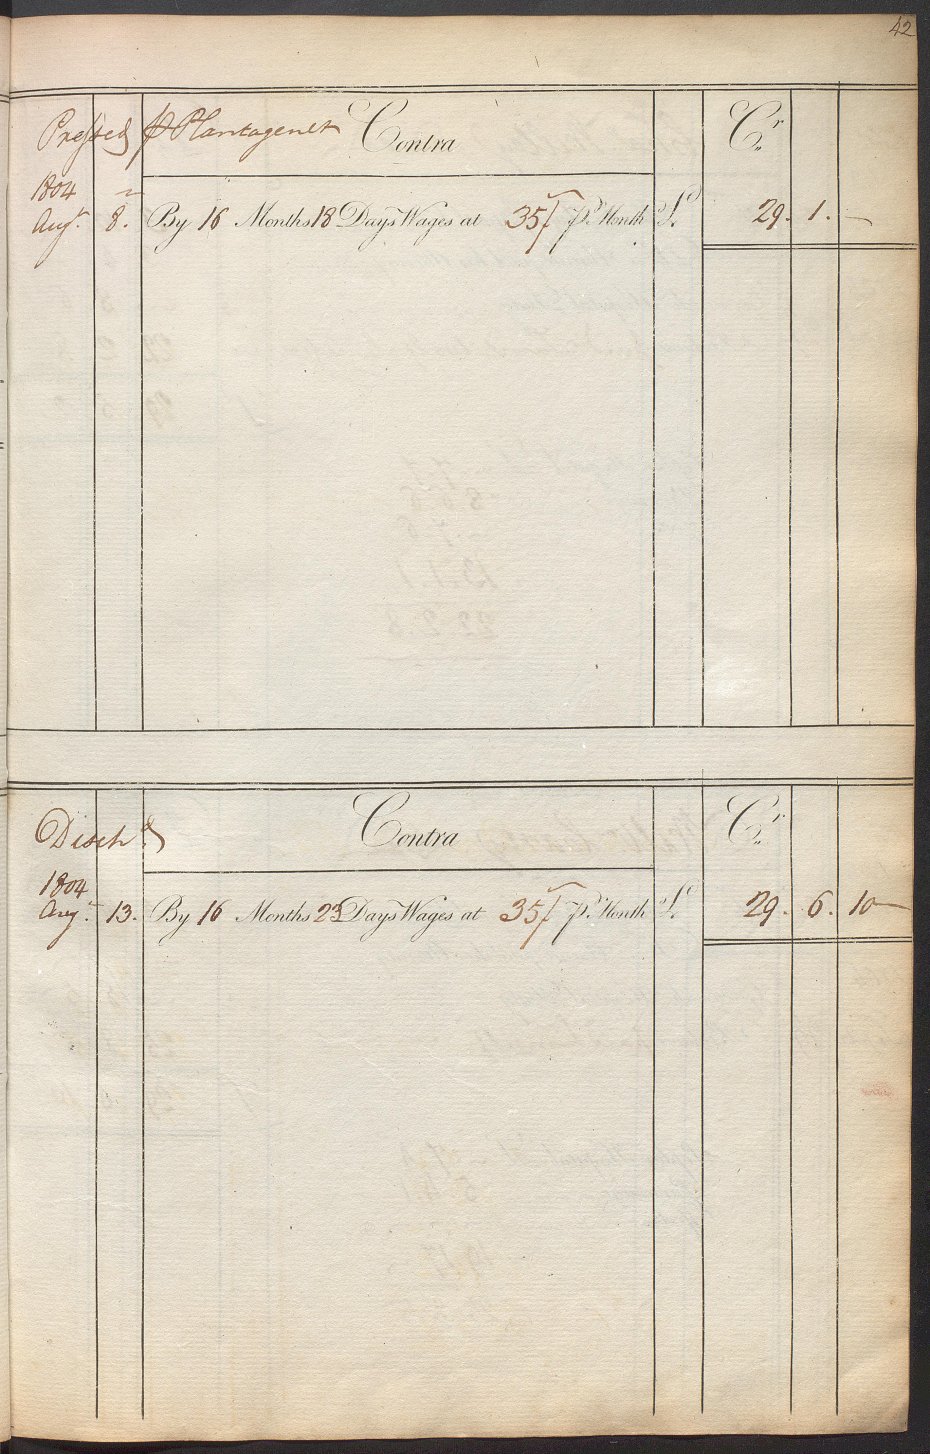 42
Pressed pr Plantagenet Contra Cr
1804
Augt 8. By 16 Months 18 Days Wages at 35/ pr. Month £. 29. 1. —
Dischd Contra Cr
1804
Augt 13. By 16 Months 23 Days Wages at 35/ pr. Month £. 29. 6. 10